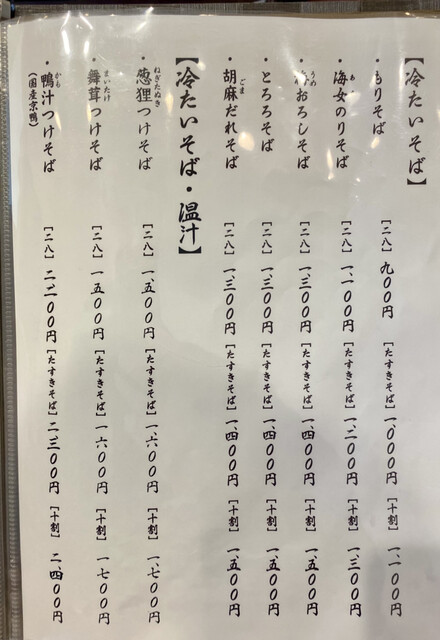 【冷たいそば】
・もりそば [二八] 九〇〇円 [たすきそば] 一、〇〇〇円 [十割] 一、一〇〇円
・海女のりそば [二八] 一、一〇〇円 [たすきそば] 一、二〇〇円 [十割] 一、三〇〇円
うめ
・梅おろしそば [二八] 一、三〇〇円 [たすきそば] 一、四〇〇円 [十割] 一、五〇〇円
・とろろそば [二八] 一、三〇〇円 [たすきそば] 一、四〇〇円 [十割] 一、五〇〇円
ごま
・胡麻だれそば [二八] 一、三〇〇円 [たすきそば] 一、四〇〇円 [十割] 一、五〇〇円
【冷たいそば・温汁】
ねぎたぬき
・葱狸つけそば [二八] 一、五〇〇円 [たすきそば] 一、六〇〇円 [十割] 一、七〇〇円
まいたけ
・舞茸つけそば [二八] 一、五〇〇円 [たすきそば] 一、六〇〇円 [十割] 一、七〇〇円
かも
・鴨汁つけそば [二八] 二、二〇〇円 [たすきそば] 二、三〇〇円 [十割] 二、四〇〇円
(国産京鴨)